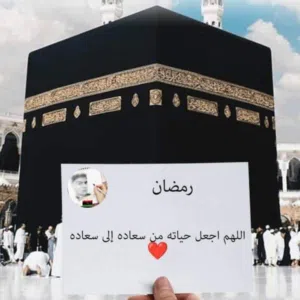 رمضان
اللهم اجعل حياته من سعاده إلى سعاده